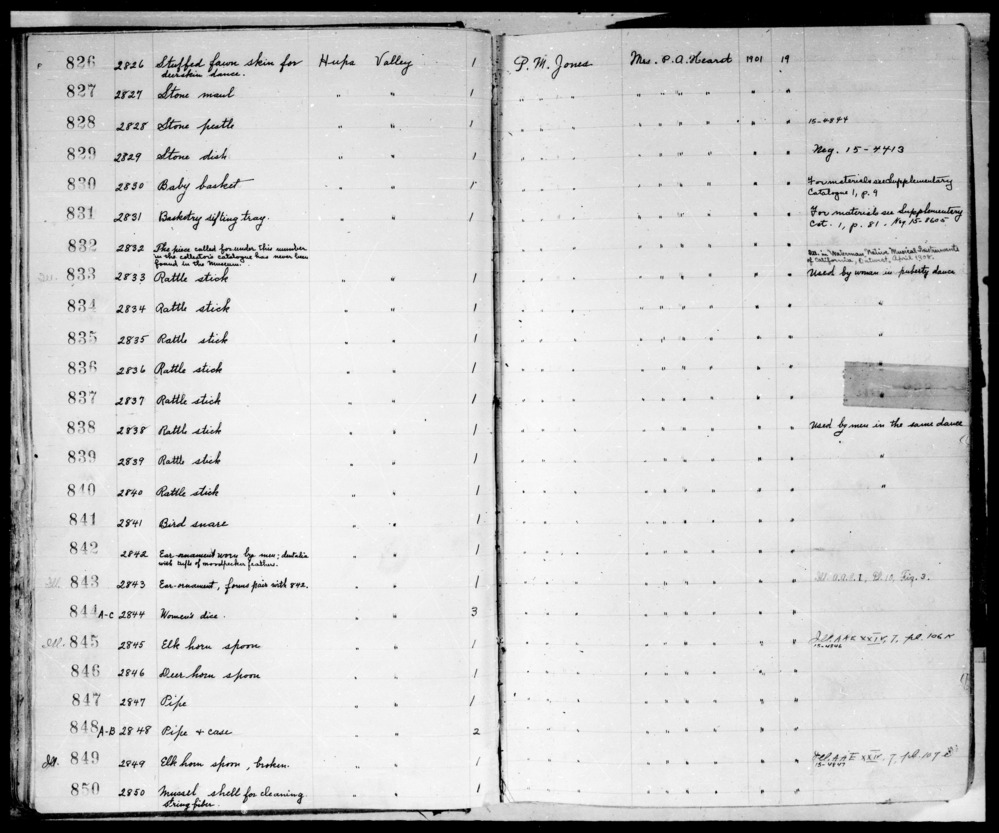 826 2826 Stuffed fawn skin for Hupa Valley 1 P. M. Jones Mrs. P. A. Heard 1901 19
deerskin dance.
827 2827 Stone maul " " 1 " " " " " " " " "
828 2828 Stone pestle " " 1 " " " " " " " " " 15-4844
829 2829 Stone dish " " 1 " " " " " " " " " Neg. 15-4413
830 2830 Baby basket " " 1 " " " " " " " " " For materials see Supplementary
Catalogue 1, p. 9
831 2831 Basketry sifting tray. " " 1 " " " " " " " " " For materials see Supplementary
Cat. 1, p. 81. Neg 15-8605
832 2832 The piece called for under this number
in the collector's catalogue has never been
found in the Museum.
Ill. in Waterman, Native Musical Instruments
of California, April 1908.
Ill. 833 2833 Rattle stick " " 1 " " " " " " " " " Used by woman in puberty dance
834 2834 Rattle stick " " 1 " " " " " " " " " "
835 2835 Rattle stick " " 1 " " " " " " " " " "
836 2836 Rattle stick " " 1 " " " " " " " " " "
837 2837 Rattle stick " " 1 " " " " " " " " "
838 2838 Rattle stick " " 1 " " " " " " " " " Used by men in the same dance
839 2839 Rattle stick " " 1 " " " " " " " " " "
840 2840 Rattle stick " " 1 " " " " " " " " " "
841 2841 Bird snare " " 1 " " " " " " " " "
842 2842 Ear-ornament worn by men; dentalia " " 1 " " " " " " " " "
with tufts of woodpecker feathers.
Ill. 843 2843 Ear-ornament, forms pair with 842. " " 1 " " " " " " " " " Pl. 10, Fig. 3.
844 A-C 2844 Women's dice. " " 3 " " " " " " " " "
Ill. 845 2845 Elk horn spoon " " 1 " " " " " " " " " Ill. AAE XXIV, 7, pl. 106 N
15-4846
846 2846 Deer horn spoon " " 1 " " " " " " " " "
847 2847 Pipe " " 1 " " " " " " " " "
848 A-B 2848 Pipe + case " " 2 " " " " " " " " "
Ill. 849 2849 Elk horn spoon, broken. " " 1 " " " " " " " " " Ill. AAE XXIV, 7, pl. 107
15-4847
850 2850 Mussel shell for cleaning " " 1 " " " " " " " " "
string fiber.